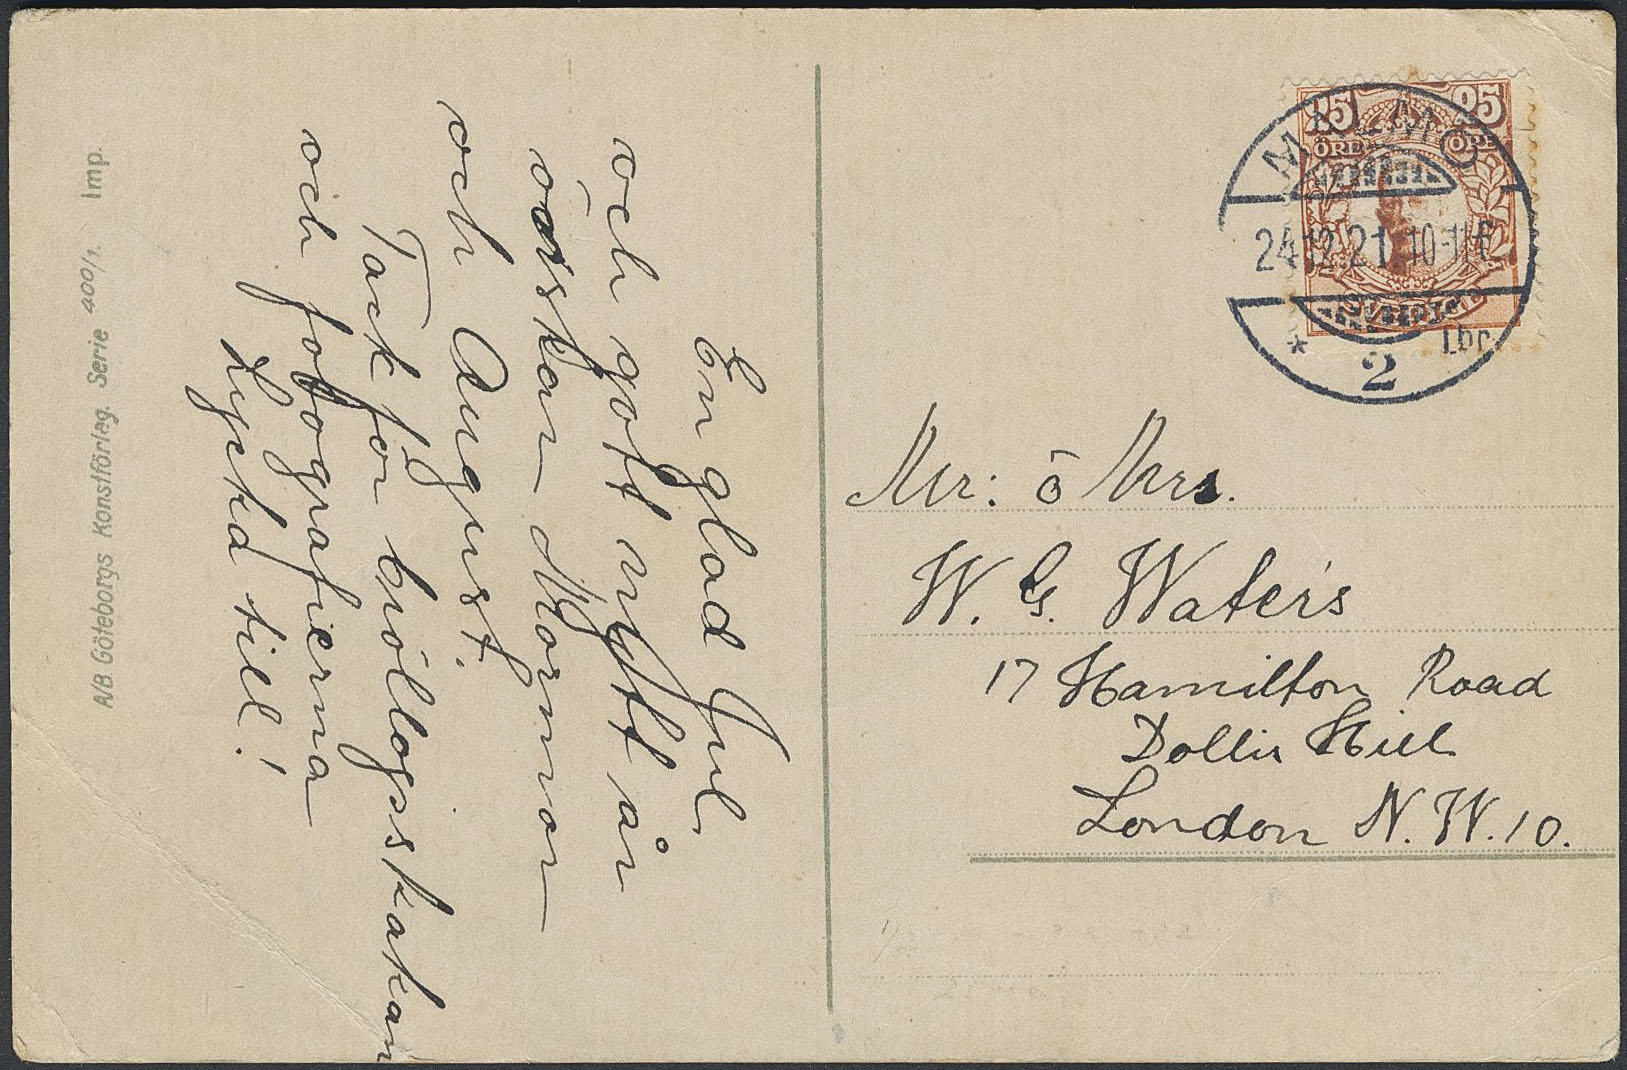 En glad Jul
och gott nytt år
önskar Mormor
och August.
Tack för bröllopskakan
och fotografierna
Lycka till!
A/B. Göteborgs Konstförlag. Serie 400/1. Imp.
25 25
ÖRE ÖRE
SVERIGE
MALMÖ
24.12.21.10-11F
* 2 Lbr.
Mr: ö Mrs.
W. G. Waters
17 Hamilton Road
Dollis Hill
London N.W.10.